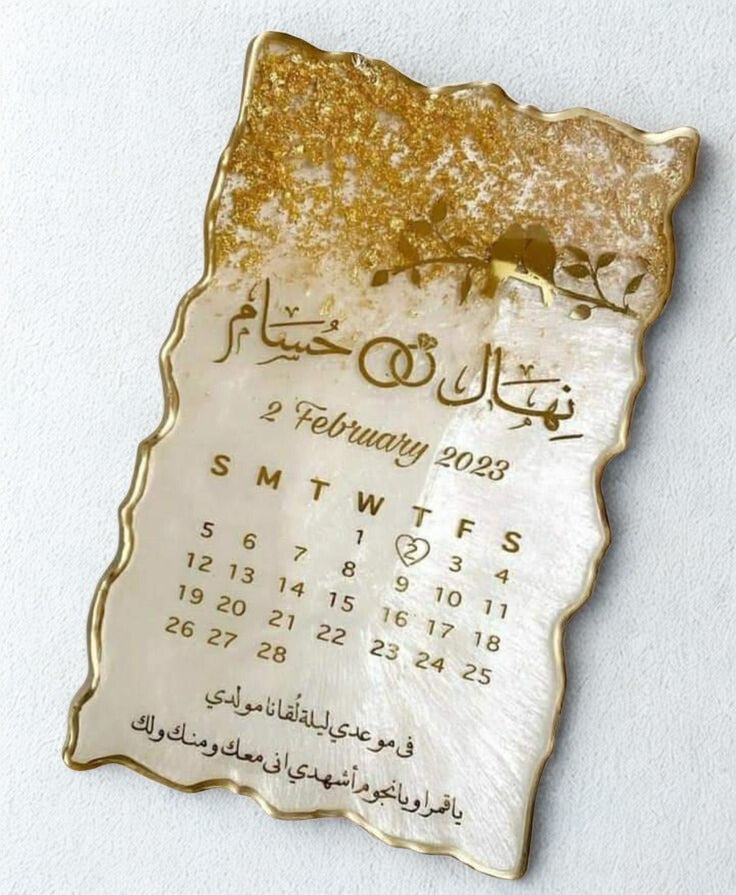 نِهَال حُسَام
2 February 2023
S M T W T F S
1 2 3 4
5 6 7 8 9 10 11
12 13 14 15 16 17 18
19 20 21 22 23 24 25
26 27 28
في موعدي ليلة لُقانا مولدي
ياقمرا ويانجوم أشهدي اني معك ومنك ولك